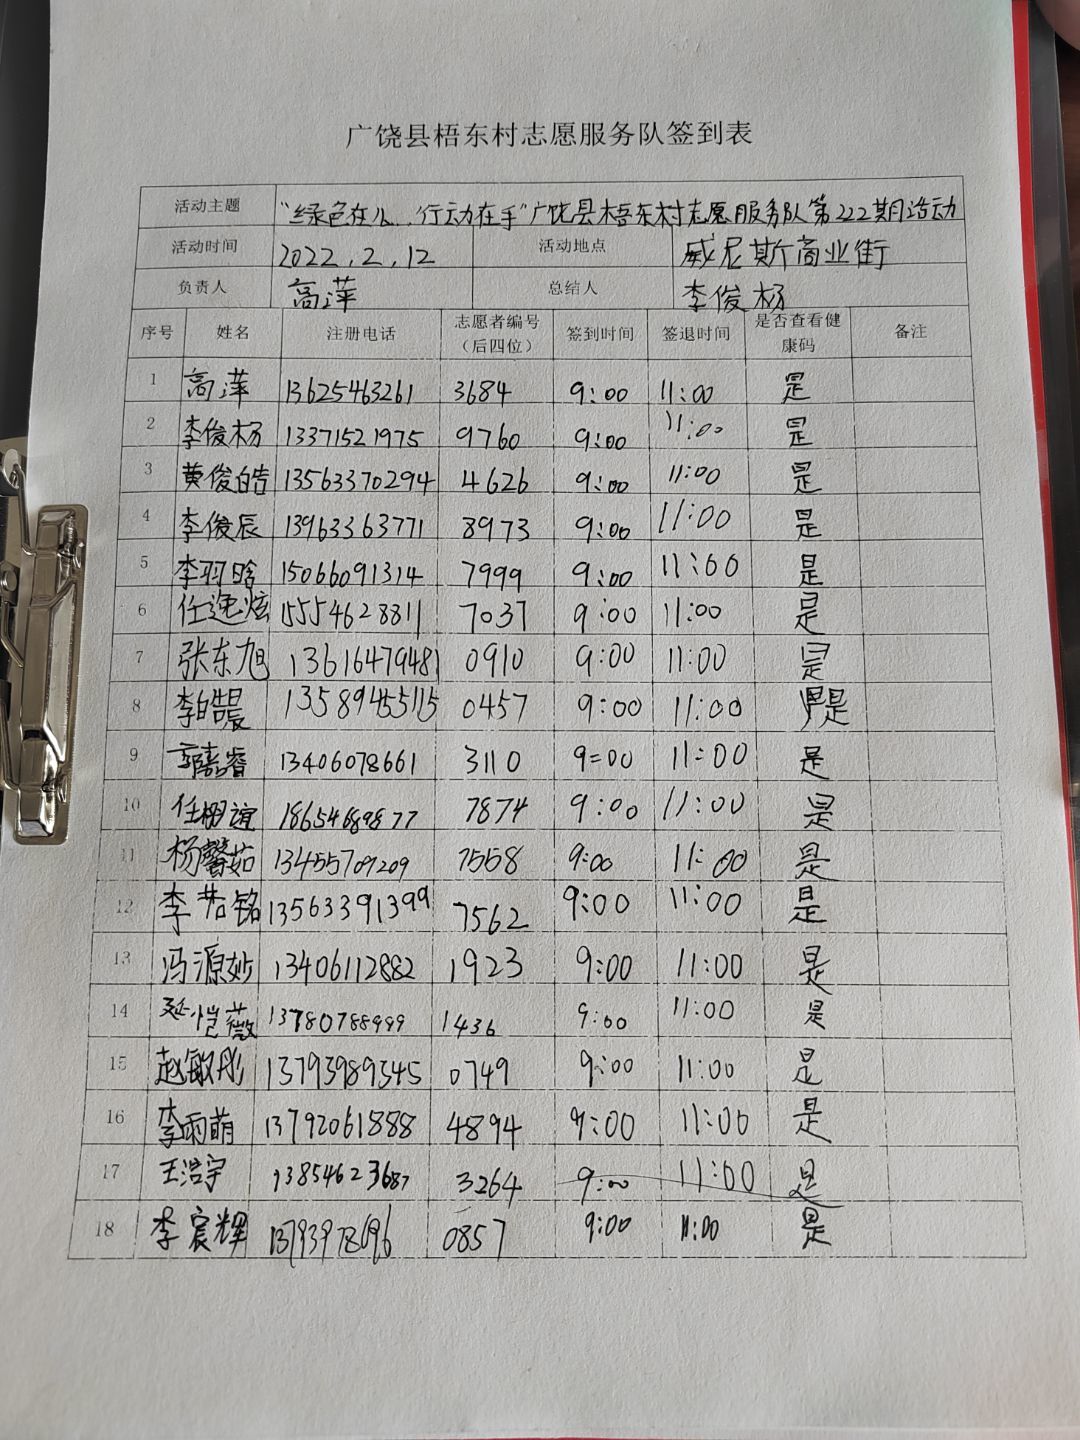 广饶县梧东村志愿服务队签到表
活动主题 "绿色在心，行动在手"广饶县梧东村志愿服务队第222期活动
活动时间 2022.2.12 活动地点 威尼斯商业街
负责人 高萍 总结人 李俊杨
序号 姓名 注册电话 志愿者编号（后四位） 签到时间 签退时间 是否查看健康码 备注
1 高萍 13625463261 3684 9:00 11:00 是
2 李俊杨 13371521975 9760 9:00 11:00 是
3 黄俊皓 13563370294 4626 9:00 11:00 是
4 李俊辰 13963363771 8973 9:00 11:00 是
5 李羽晗 15066091314 7999 9:00 11:00 是
6 任逸炫 15554628811 7037 9:00 11:00 是
7 张东旭 13616479481 0910 9:00 11:00 是
8 李皓晨 13589455115 0457 9:00 11:00 是
9 13406078661 3110 9:00 11:00 是
10 任栩谊 18654689877 7874 9:00 11:00 是
11 杨馨茹 13455709209 7558 9:00 11:00 是
12 李若铭 13563391399 7562 9:00 11:00 是
13 冯源妙 13406112882 1923 9:00 11:00 是
14 延恺薇 13780788999 1436 9:00 11:00 是
15 赵敏彤 13793989345 0749 9:00 11:00 是
16 李雨萌 13792061888 4894 9:00 11:00 是
17 王浩宇 13854623687 3264 9:00 11:00 是
18 李宸辉 13793978696 0857 9:00 11:00 是